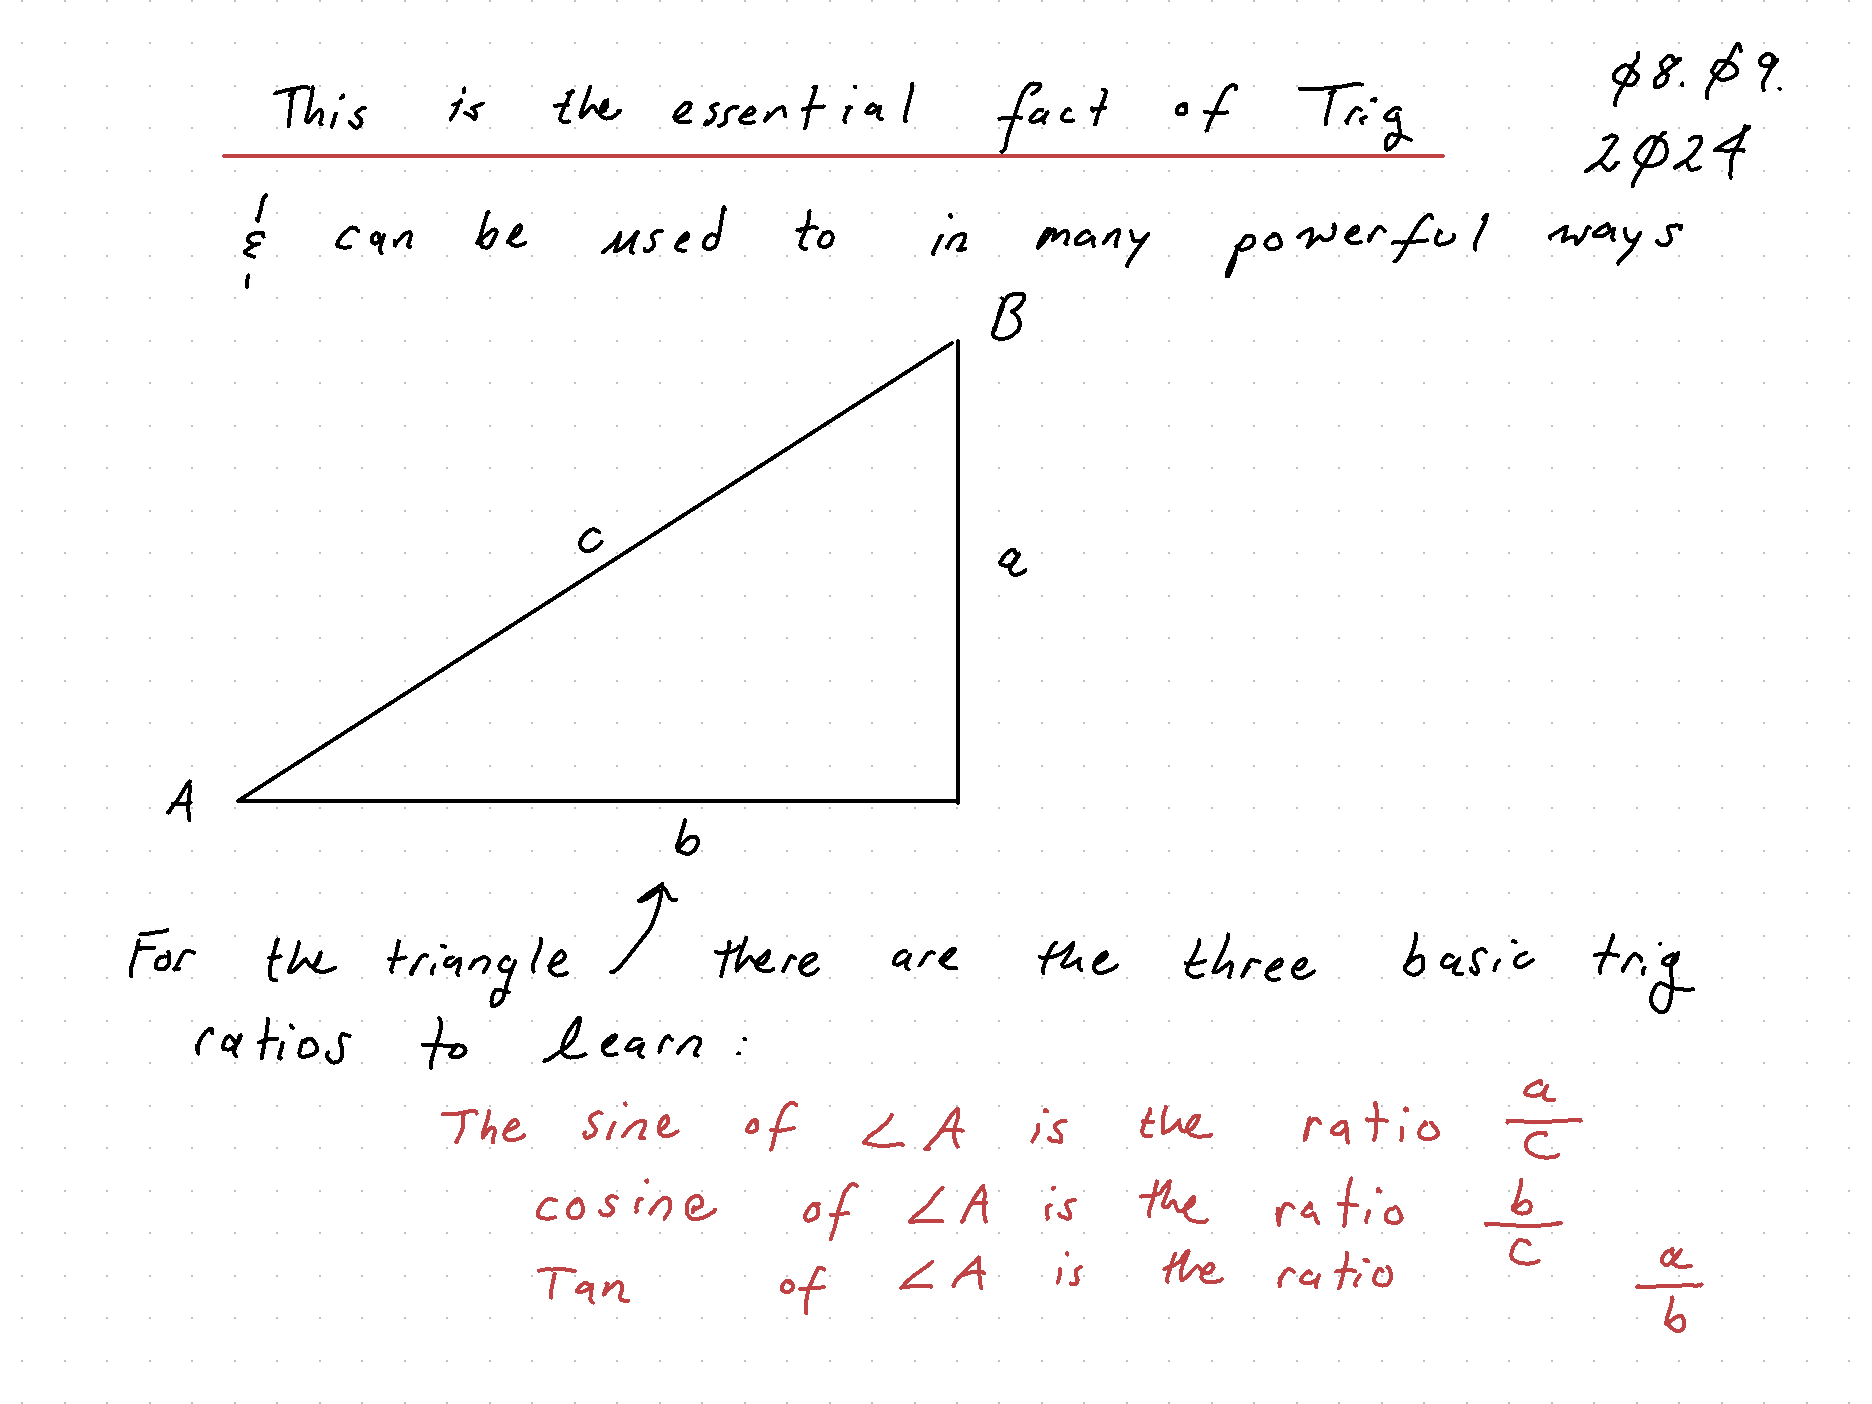 This is the essential fact of Trig
Ø8.Ø9.
2Ø24
& can be used to in many powerful ways
B
c
a
A
b
For the triangle ↗ there are the three basic trig
ratios to learn:
The sine of ∠A is the ratio a/c
cosine of ∠A is the ratio b/c
Tan of ∠A is the ratio a/b